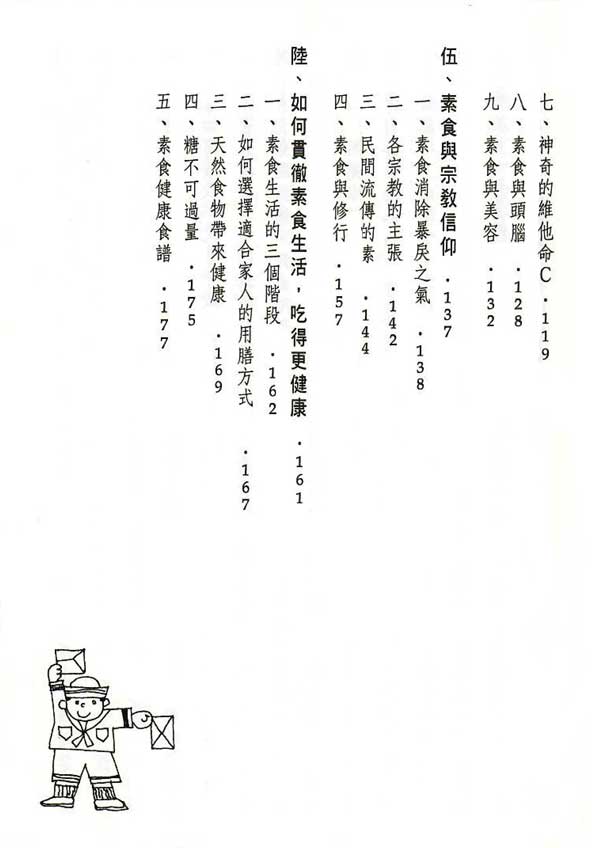 七、神奇的維他命C ‧119
八、素食與頭腦 ‧128
九、素食與美容 ‧132
伍、素食與宗教信仰 ‧137
一、素食消除暴戾之氣 ‧138
二、各宗教的主張 ‧142
三、民間流傳的素 ‧144
四、素食與修行 ‧157
陸、如何貫徹素食生活，吃得更健康 ‧161
一、素食生活的三個階段 ‧162
二、如何選擇適合家人的用膳方式 ‧167
三、天然食物帶來健康 ‧169
四、糖不可過量 ‧175
五、素食健康食譜 ‧177